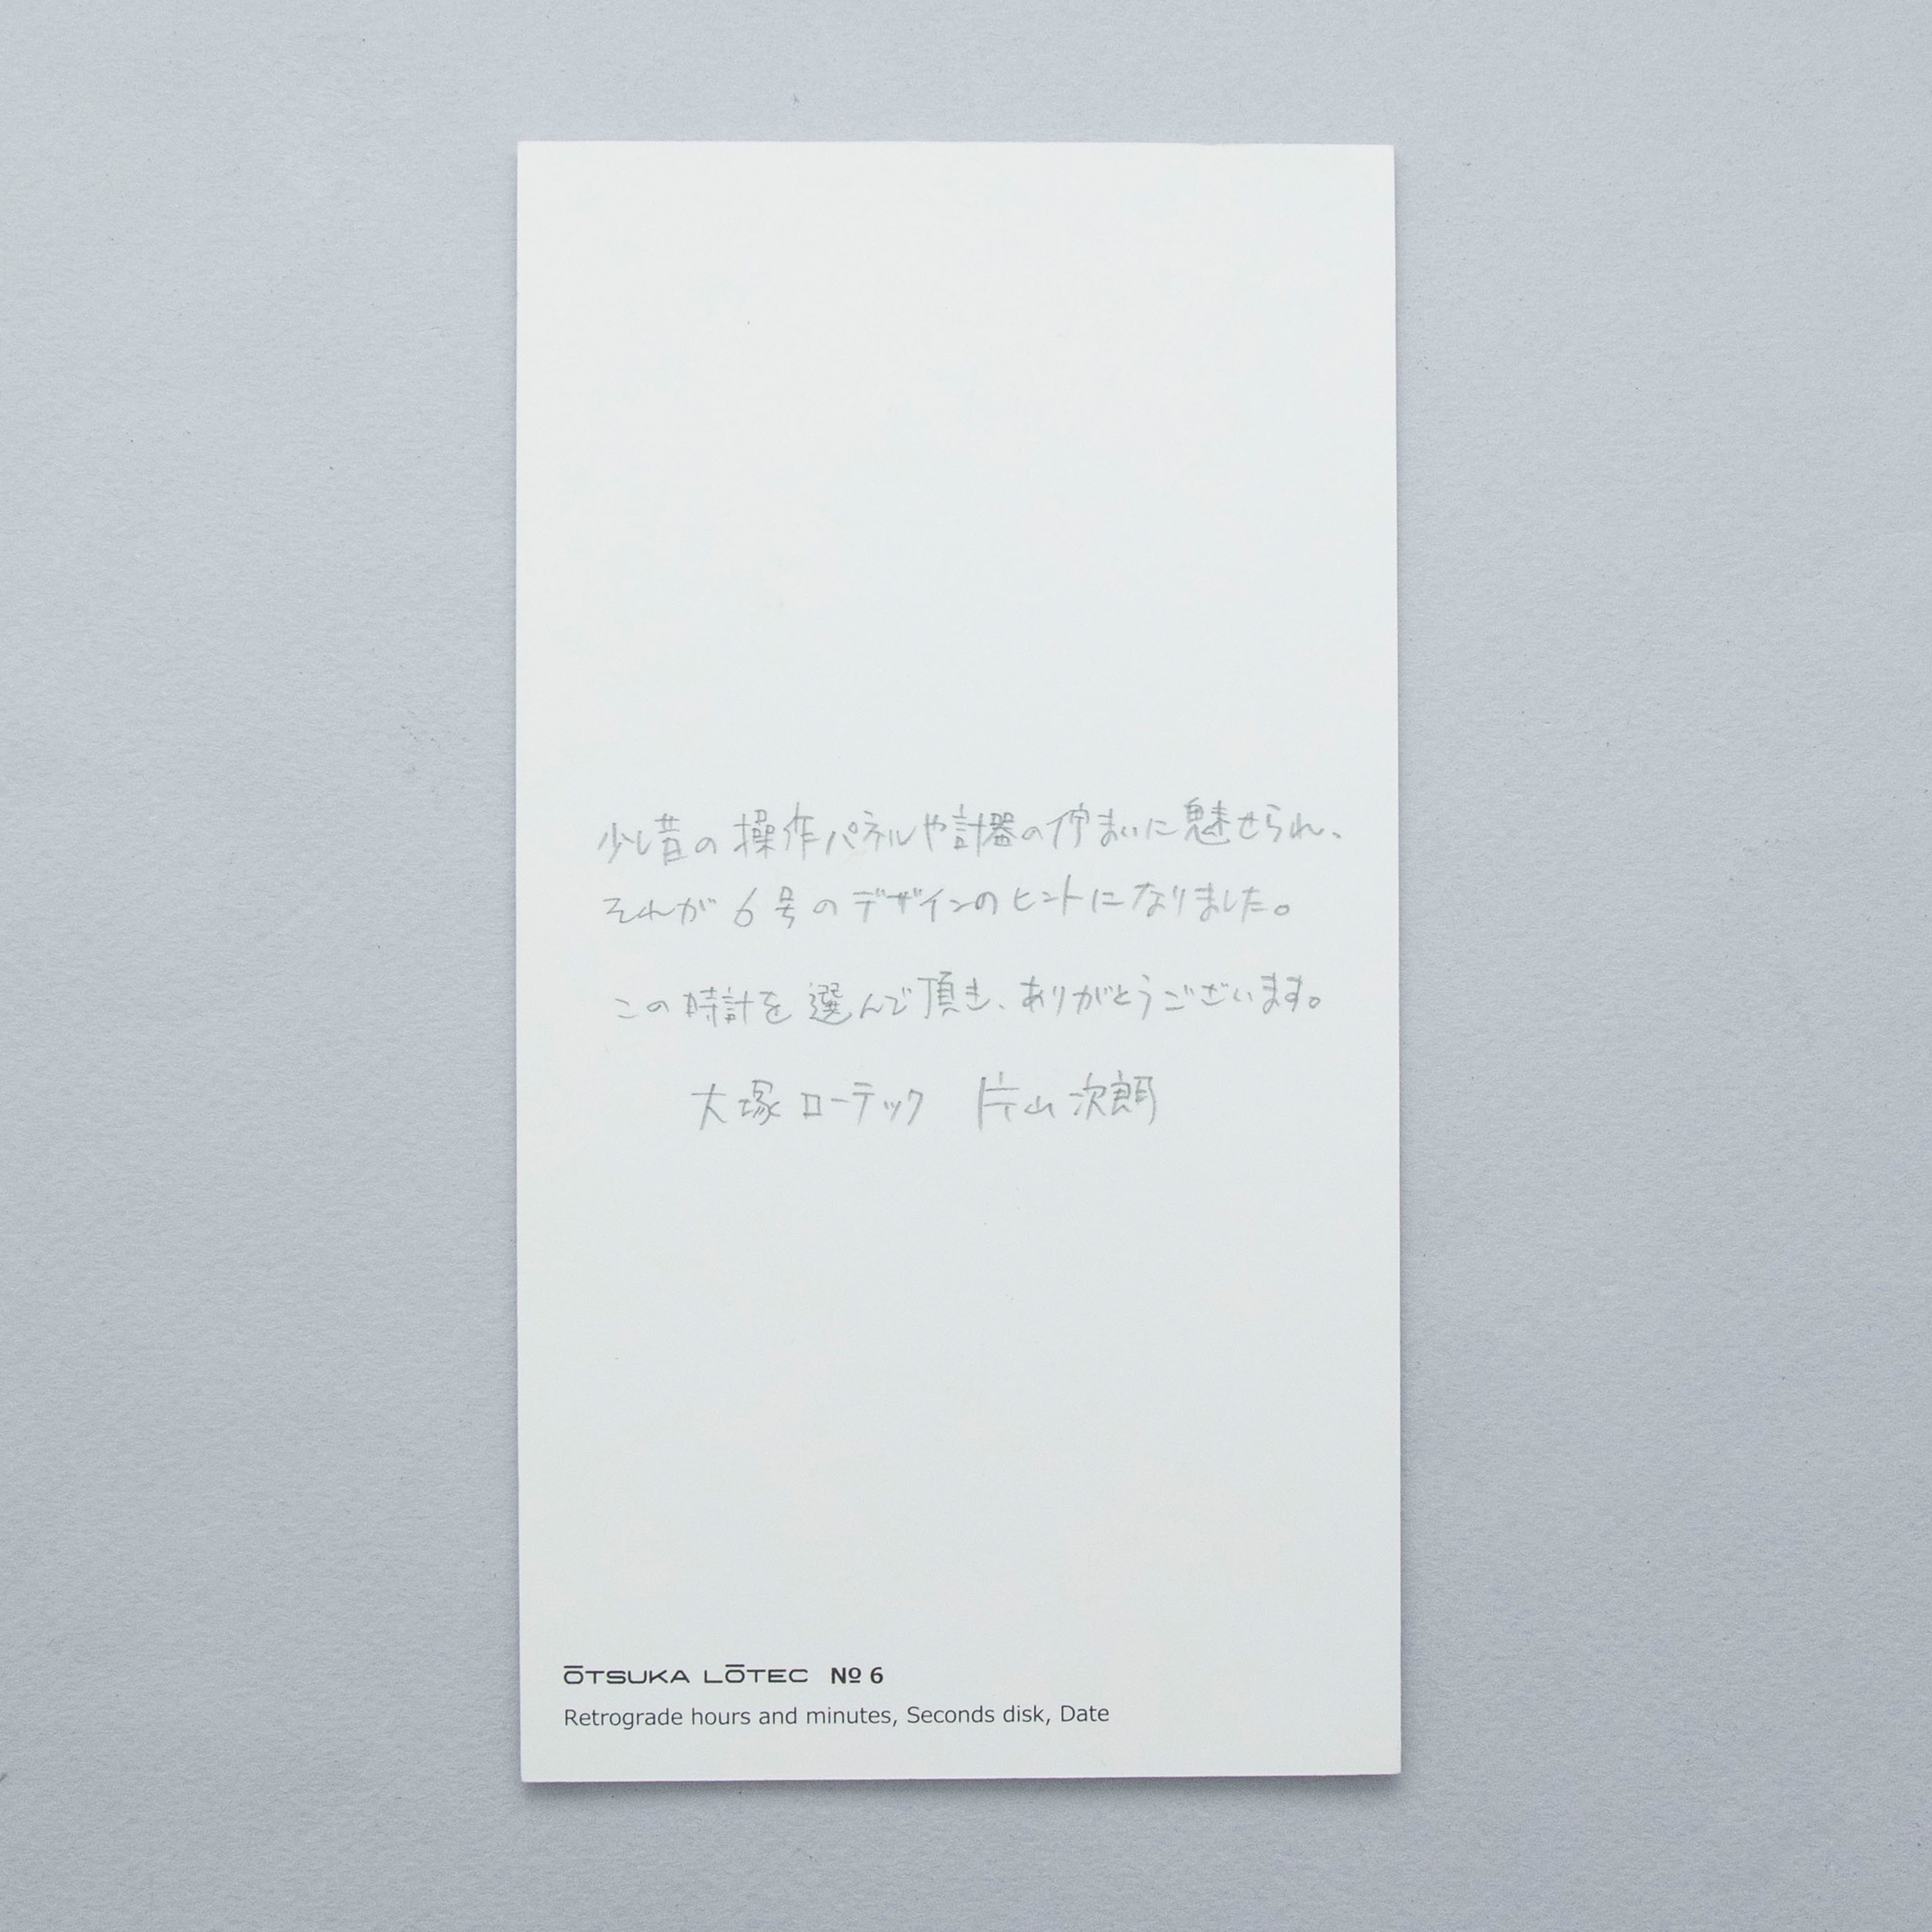 少し昔の操作パネルや計器の佇まいに魅せられ、
それが6号のデザインのヒントになりました。
この時計を選んで頂き、ありがとうございます。
大塚ローテック 片山次朗
ŌTSUKA LŌTEC № 6
Retrograde hours and minutes, Seconds disk, Date